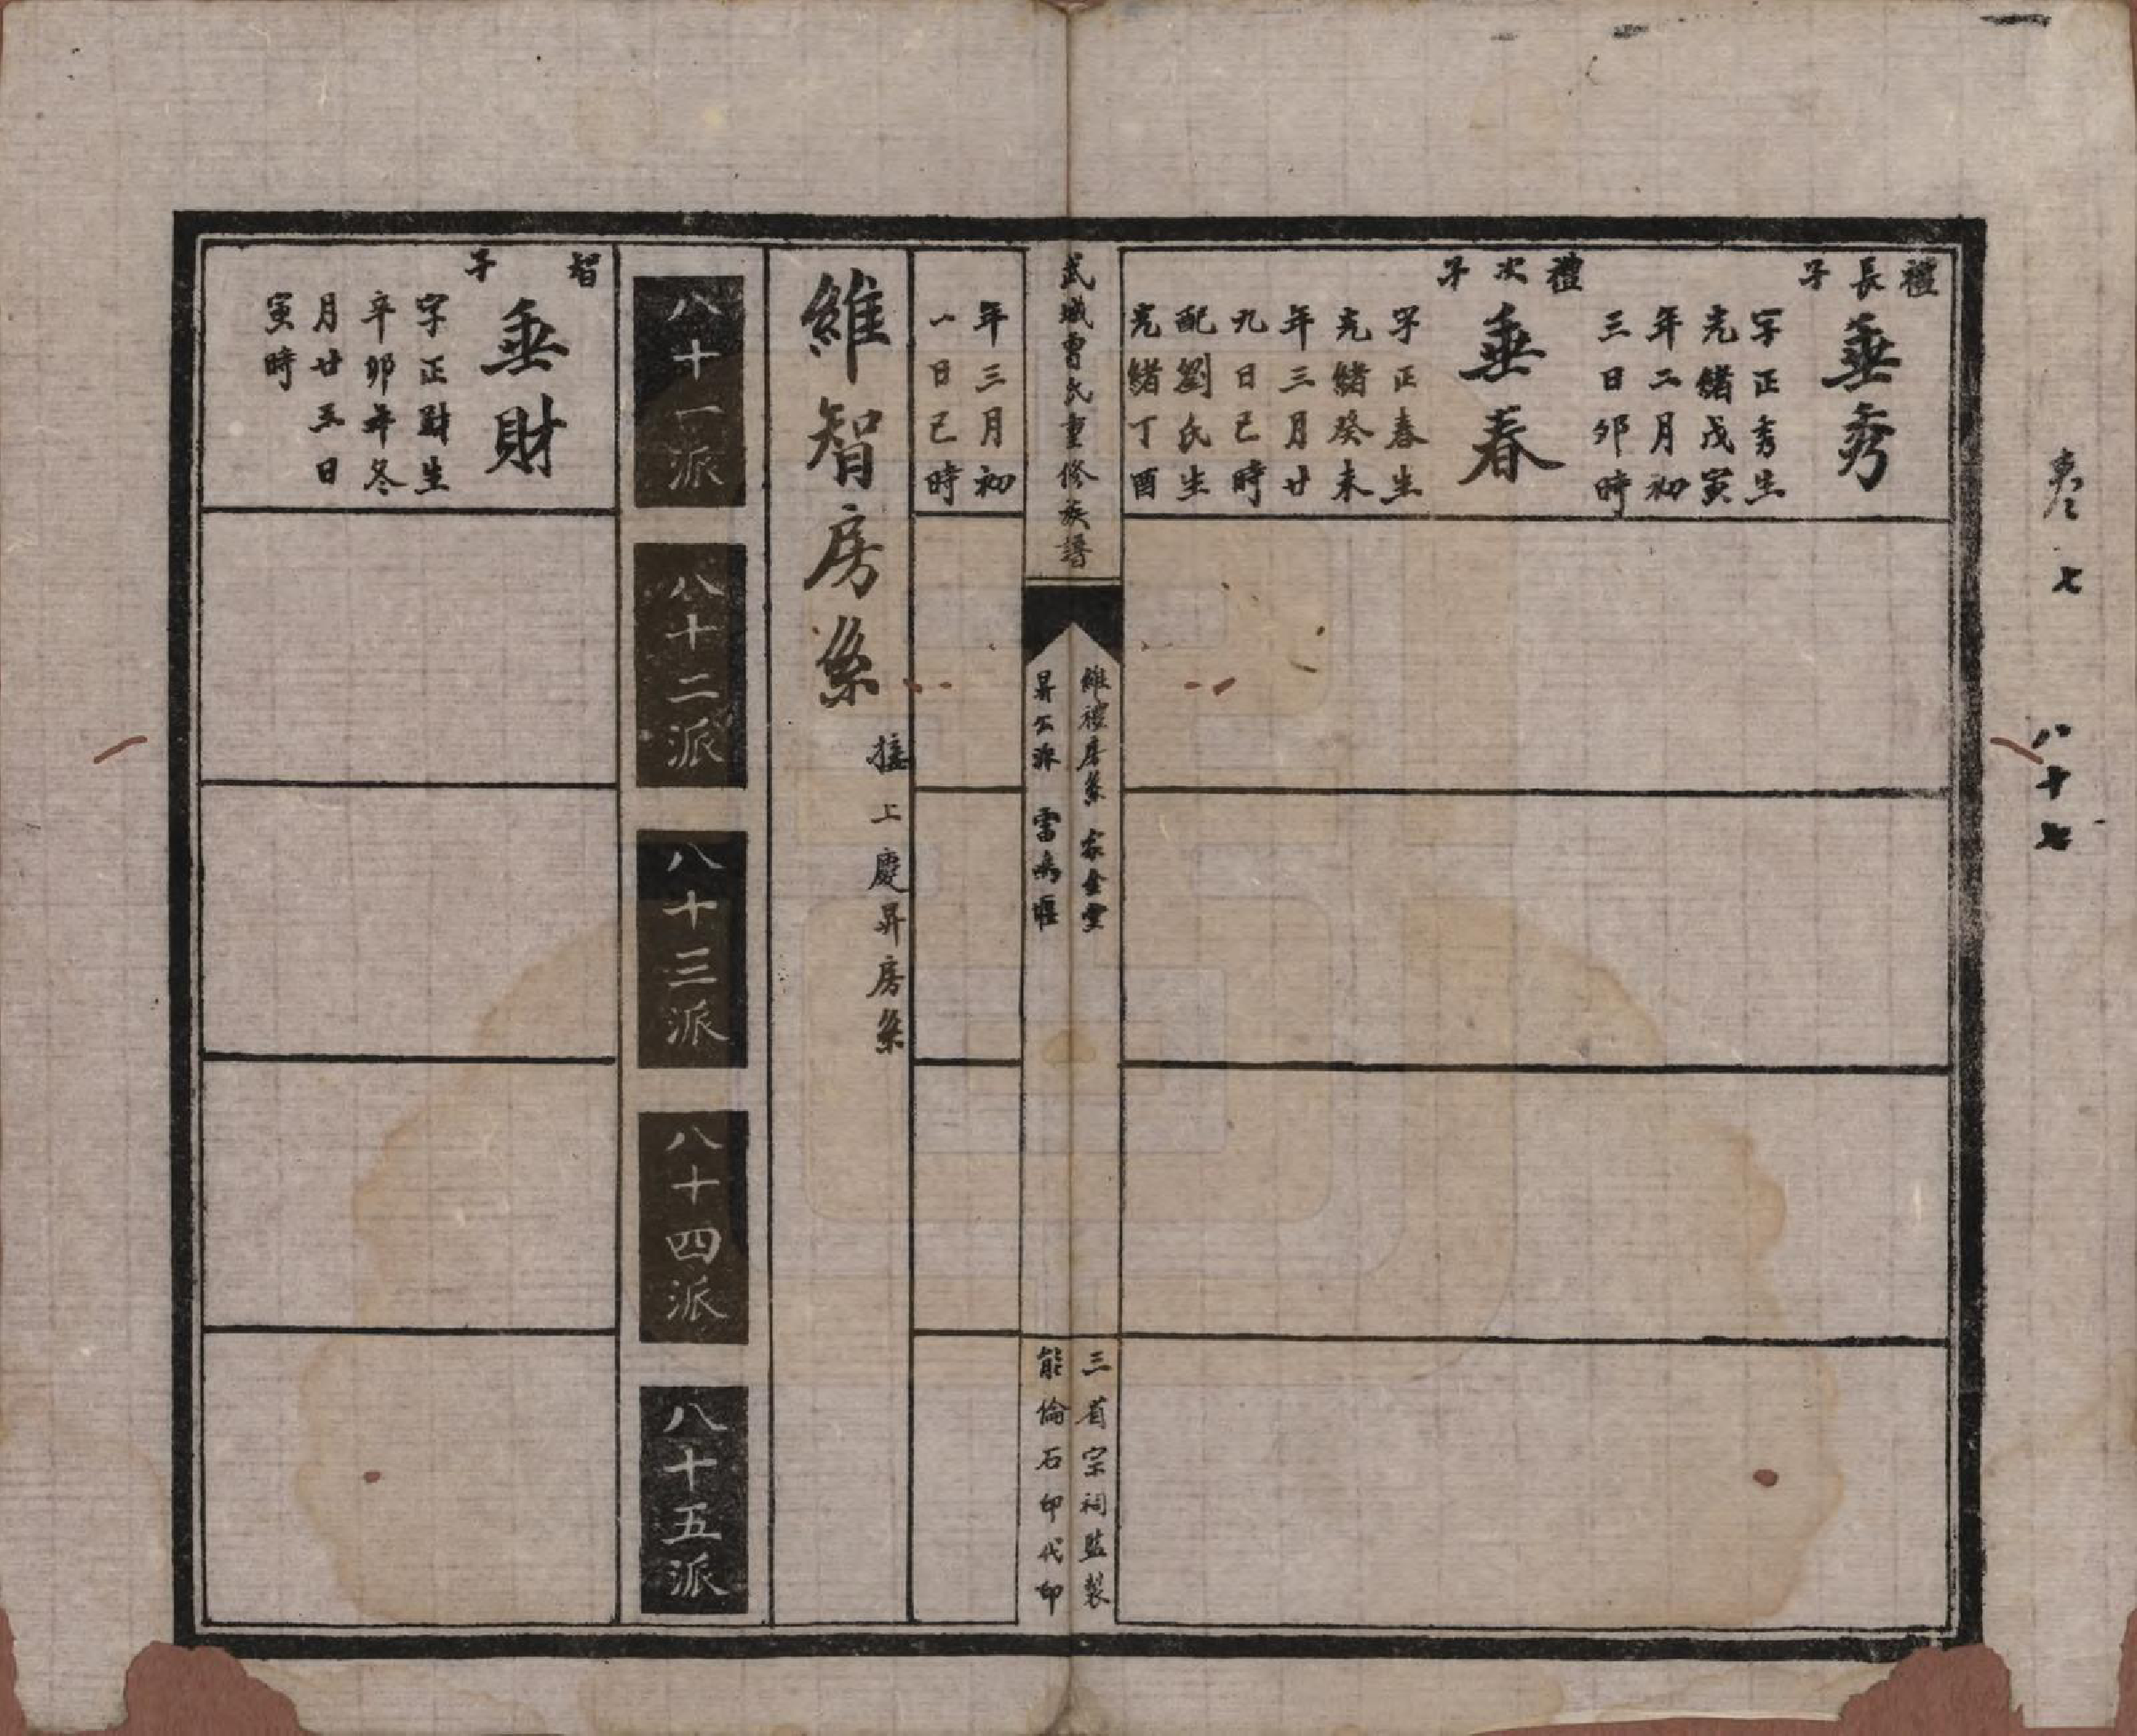 卷七
八十七
禮長子
垂秀
字正秀生
光緒戊寅
年二月初
三日卯時
禮次子
垂春
字正春生
光緒癸未
年三月廿
九日巳時
配劉氏生
光緒丁酉
武城曾氏重修族譜
維禮房系
昇公派
三省宗祠監製
能倫石印代印
年三月初
一日巳時
維智房系
接上慶昇房系
八十一派
八十二派
八十三派
八十四派
八十五派
智子
垂財
字正財生
辛卯年冬
月廿五日
寅時